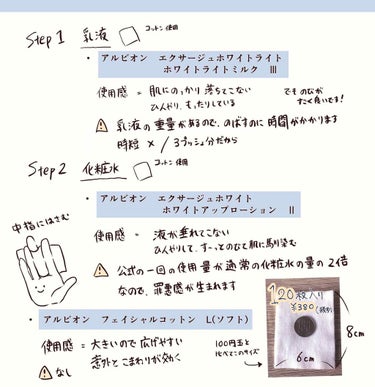 Step 1 乳液 コットン使用
・アルビオン エクサージュホワイトライト
ホワイトライトミルク Ⅲ
使用感 = 肌にのっかり落ちてこない
ひんやり、もったりしている
でものびが
すごく良いです!
⚠ 乳液の重量があるので、のばすのに時間がかかります
時短 × / 3プッシュ分だから
Step 2 化粧水 コットン使用
・アルビオン エクサージュホワイト
ホワイトアップローション Ⅱ
中指にはさむ
使用感 = 液が垂れてこない
ひんやりして、すーっとのびて肌に馴染む
⚠ 公式の一回の使用量が通常の化粧水の量の2倍
なので、罪悪感が生まれます
・アルビオン フェイシャルコットン L(ソフト)
使用感 = 大きいので広げやすい
意外とこまわりが効く
⚠ なし
100円玉と
比べてこのサイズ
120枚入り
¥380(税抜)
8cm
6cm